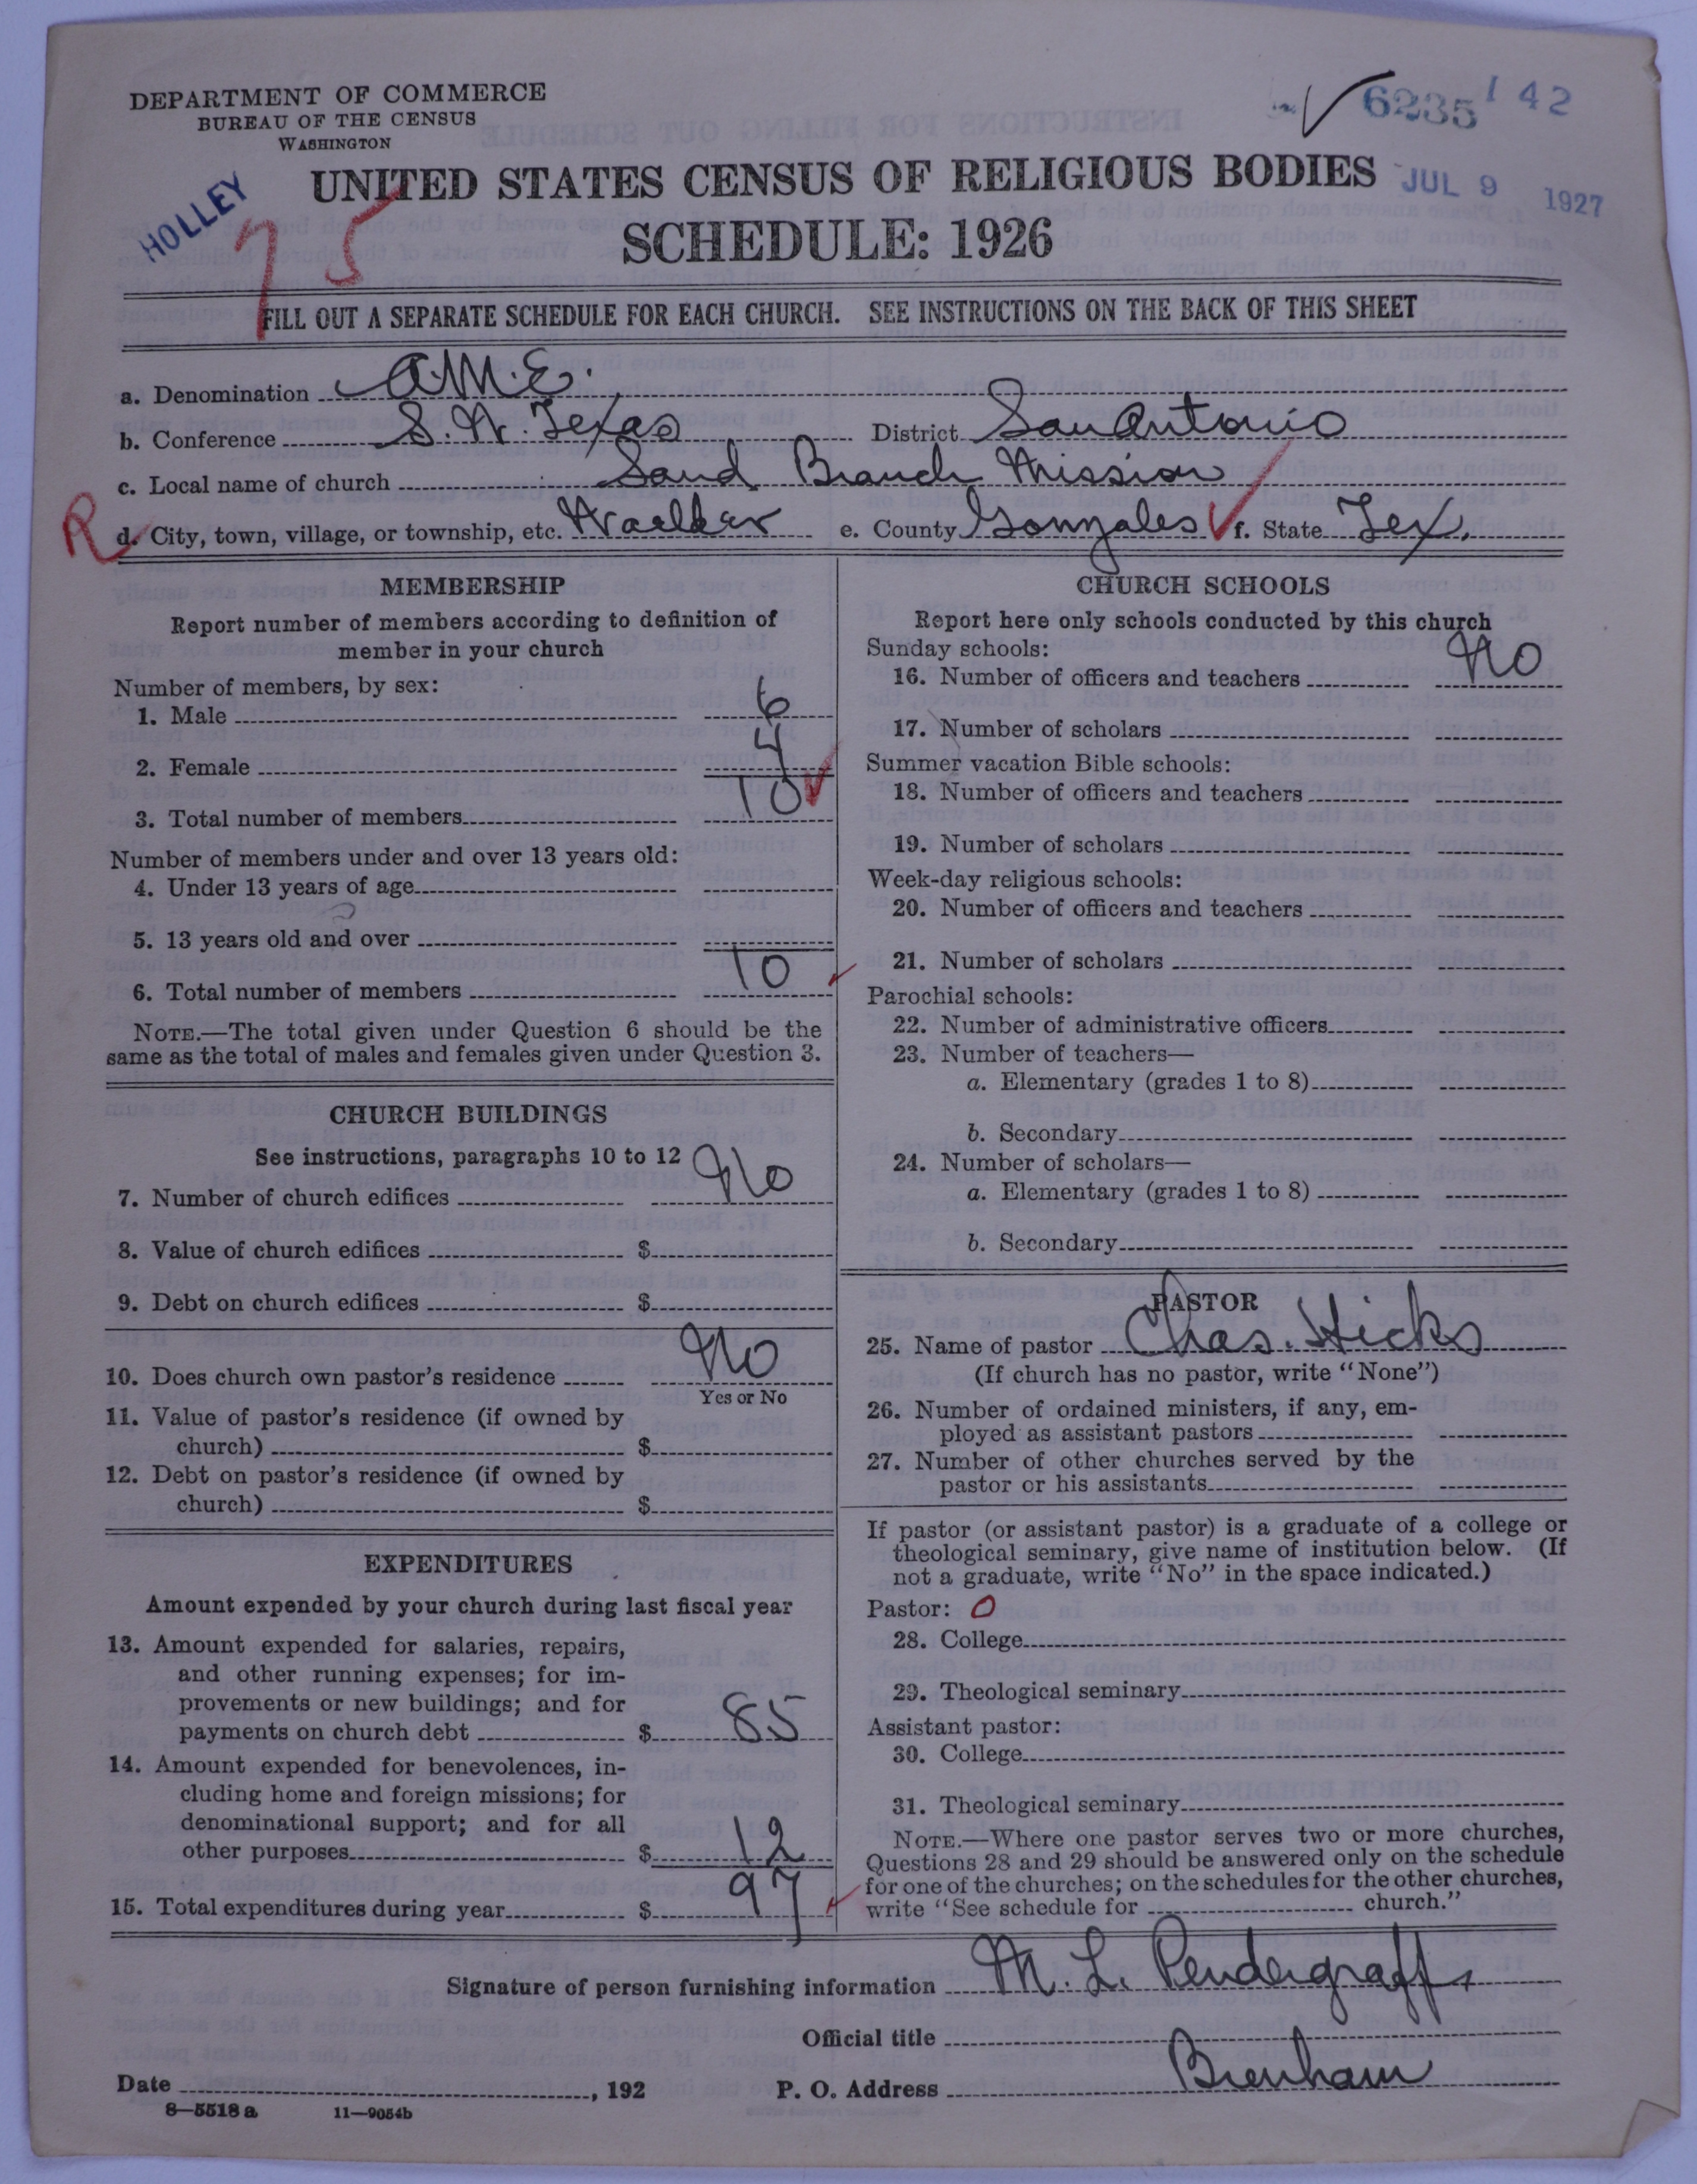 DEPARTMENT OF COMMERCE
BUREAU OF THE CENSUS
WASHINGTON
6235 142
HOLLEY
75
UNITED STATES CENSUS OF RELIGIOUS BODIES
JUL 9 1927
SCHEDULE: 1926
FILL OUT A SEPARATE SCHEDULE FOR EACH CHURCH. SEE INSTRUCTIONS ON THE BACK OF THIS SHEET
a. Denomination A.M.E.
b. Conference S.W. Texas District San Antonio
c. Local name of church Sand Branch Mission
R
d. City, town, village, or township, etc. Waelder e. County Gonzales f. State Tex.
MEMBERSHIP
Report number of members according to definition of
member in your church
Number of members, by sex:
1. Male 6
2. Female 4
3. Total number of members 10
Number of members under and over 13 years old:
4. Under 13 years of age
5. 13 years old and over
6. Total number of members 10
NOTE.—The total given under Question 6 should be the
same as the total of males and females given under Question 3.
CHURCH BUILDINGS
See instructions, paragraphs 10 to 12
7. Number of church edifices No
8. Value of church edifices $
9. Debt on church edifices $
10. Does church own pastor's residence No
Yes or No
11. Value of pastor's residence (if owned by
church) $
12. Debt on pastor's residence (if owned by
church) $
EXPENDITURES
Amount expended by your church during last fiscal year
13. Amount expended for salaries, repairs,
and other running expenses; for im-
provements or new buildings; and for
payments on church debt $ 85
14. Amount expended for benevolences, in-
cluding home and foreign missions; for
denominational support; and for all
other purposes $ 12
15. Total expenditures during year $ 97
CHURCH SCHOOLS
Report here only schools conducted by this church
Sunday schools:
16. Number of officers and teachers No
17. Number of scholars
Summer vacation Bible schools:
18. Number of officers and teachers
19. Number of scholars
Week-day religious schools:
20. Number of officers and teachers
21. Number of scholars
Parochial schools:
22. Number of administrative officers
23. Number of teachers—
a. Elementary (grades 1 to 8)
b. Secondary
24. Number of scholars—
a. Elementary (grades 1 to 8)
b. Secondary
PASTOR
25. Name of pastor Chas. Hicks
(If church has no pastor, write "None")
26. Number of ordained ministers, if any, em-
ployed as assistant pastors
27. Number of other churches served by the
pastor or his assistants
If pastor (or assistant pastor) is a graduate of a college or
theological seminary, give name of institution below. (If
not a graduate, write "No" in the space indicated.)
Pastor: 0
28. College
29. Theological seminary
Assistant pastor:
30. College
31. Theological seminary
NOTE.—Where one pastor serves two or more churches,
Questions 28 and 29 should be answered only on the schedule
for one of the churches; on the schedules for the other churches,
write "See schedule for church."
Signature of person furnishing information M. L. Pendergraff
Official title
Date , 192 P. O. Address Brenham
8—5518 a 11—9054b